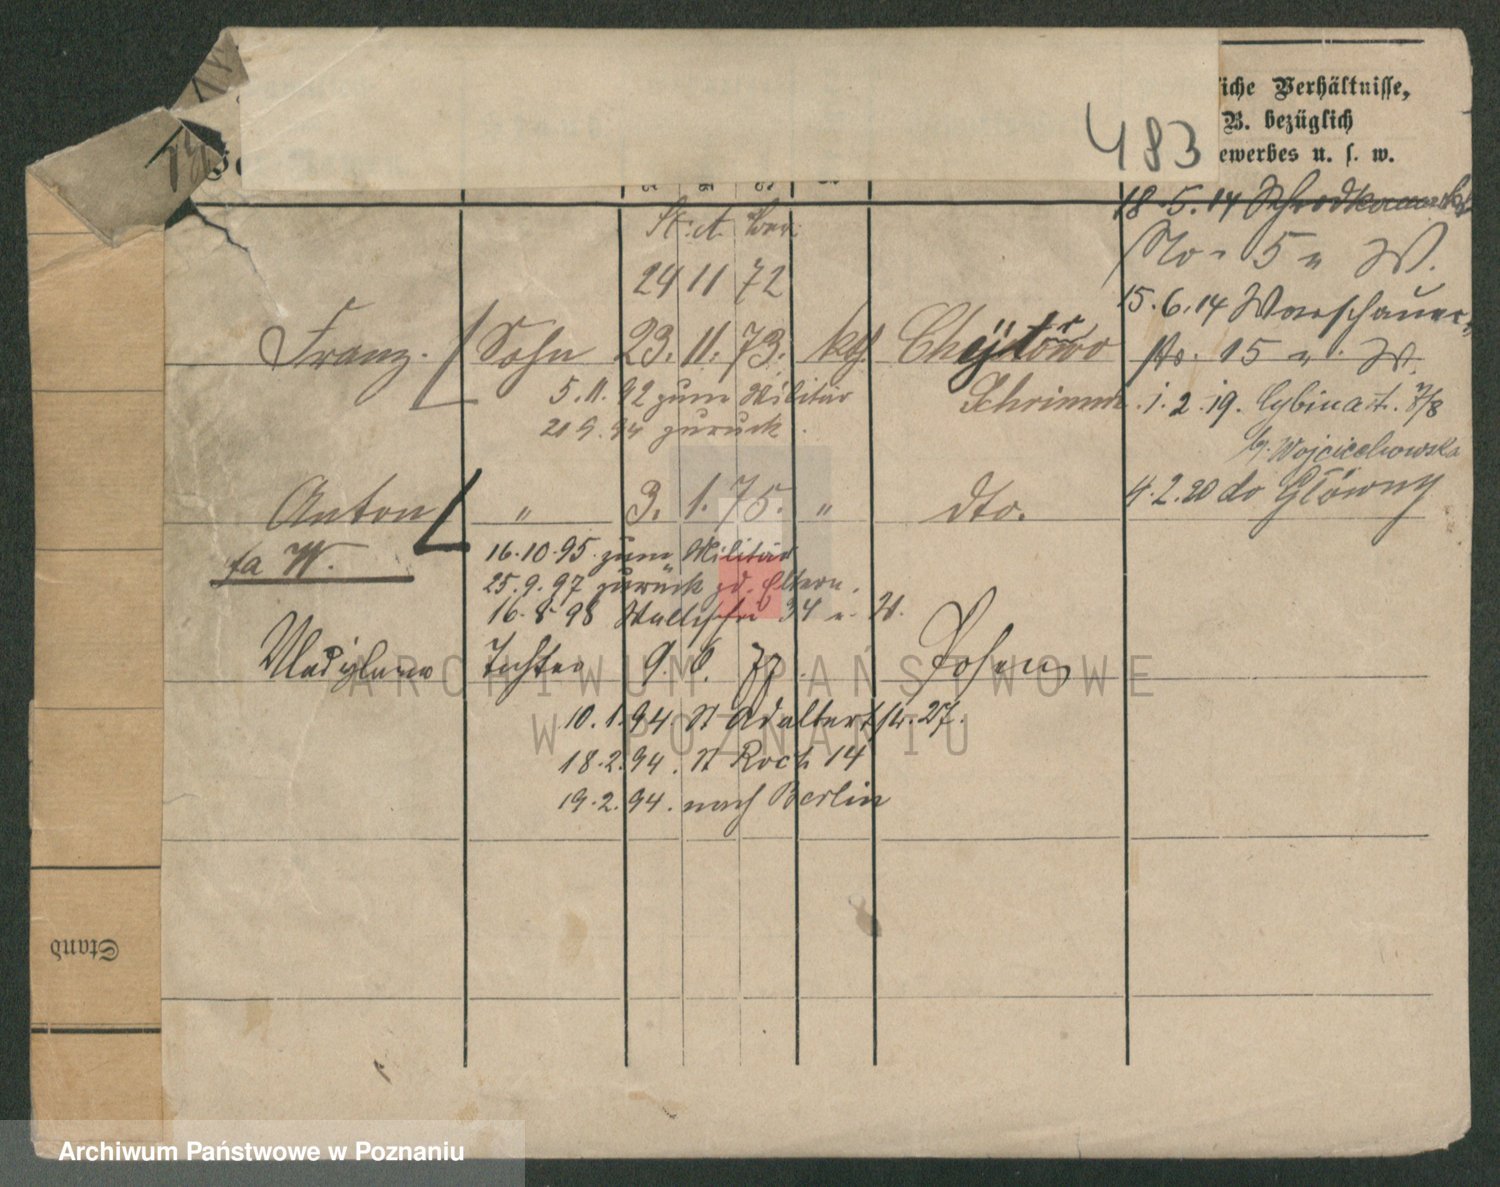 483
iche Verhältnisse,
B. bezüglich
ewerbes u. s. w.
18.5.14
No 5 " W.
St. A. Ber.
24 11 72
15.6.14 Warschauer
Franz. Sohn 23. 11. 73. kth.
str. 15 " W.
5.11.92 zum Militär
Schrimm
1.2.19. Cybinast. 7/8
21 9.94 zurück.
b. Wojciechowska
4.2.20 do Główny
Anton " 3. 1. 75. " dto.
fa W.
16.10.95. zum Militär
25.9.97 zurück zd. Eltern.
16.8.98 Wallischei 34 " W.
Wladislawa Tochter 9. 6. 77. Posen
10.1.94. St Adalbertstr. 27.
18.2.94. St Roch 14
19.2.94. nach Berlin
Stand
ARCHIWUM PAŃSTWOWE
W POZNANIU
Archiwum Państwowe w Poznaniu